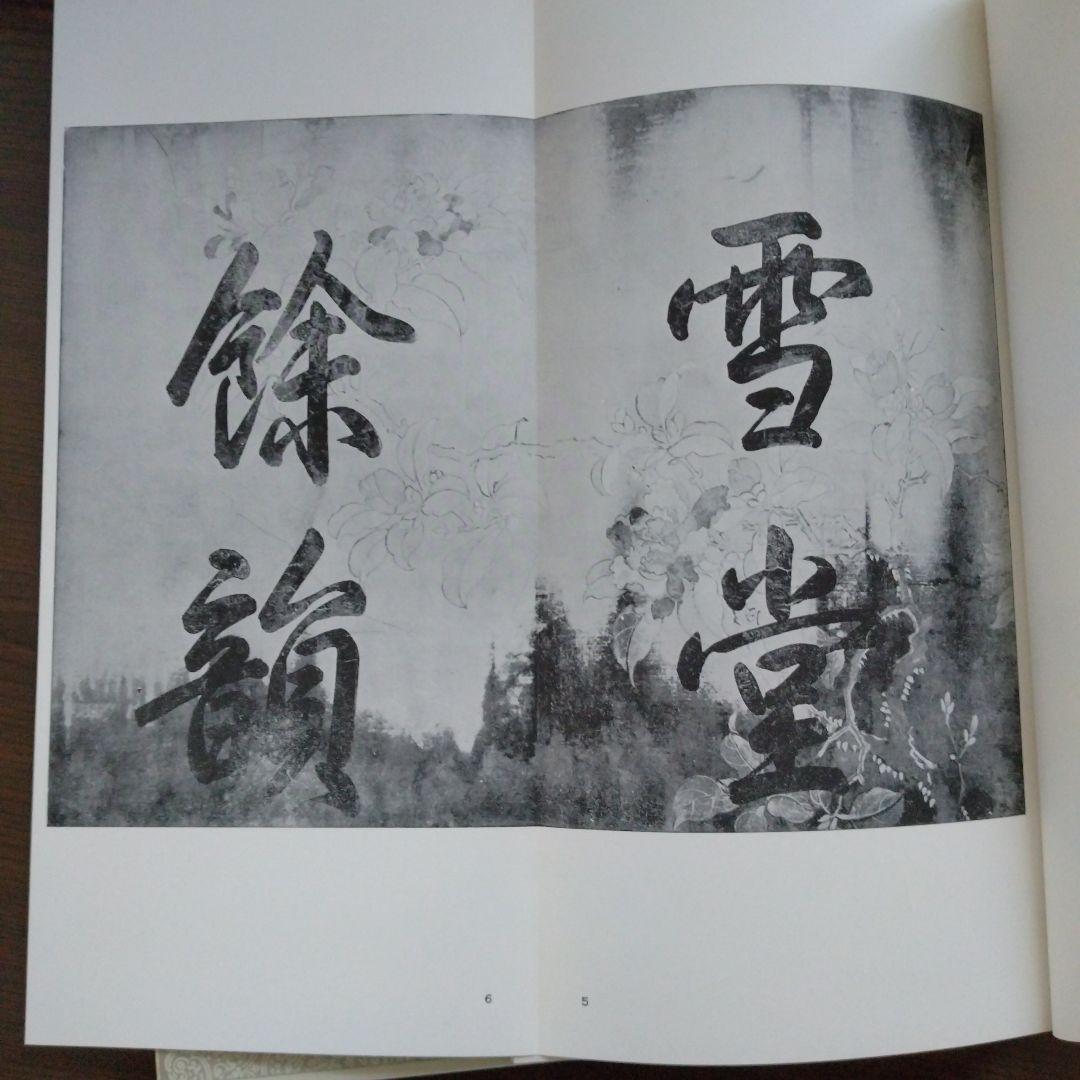 雪堂
餘韻
5
6